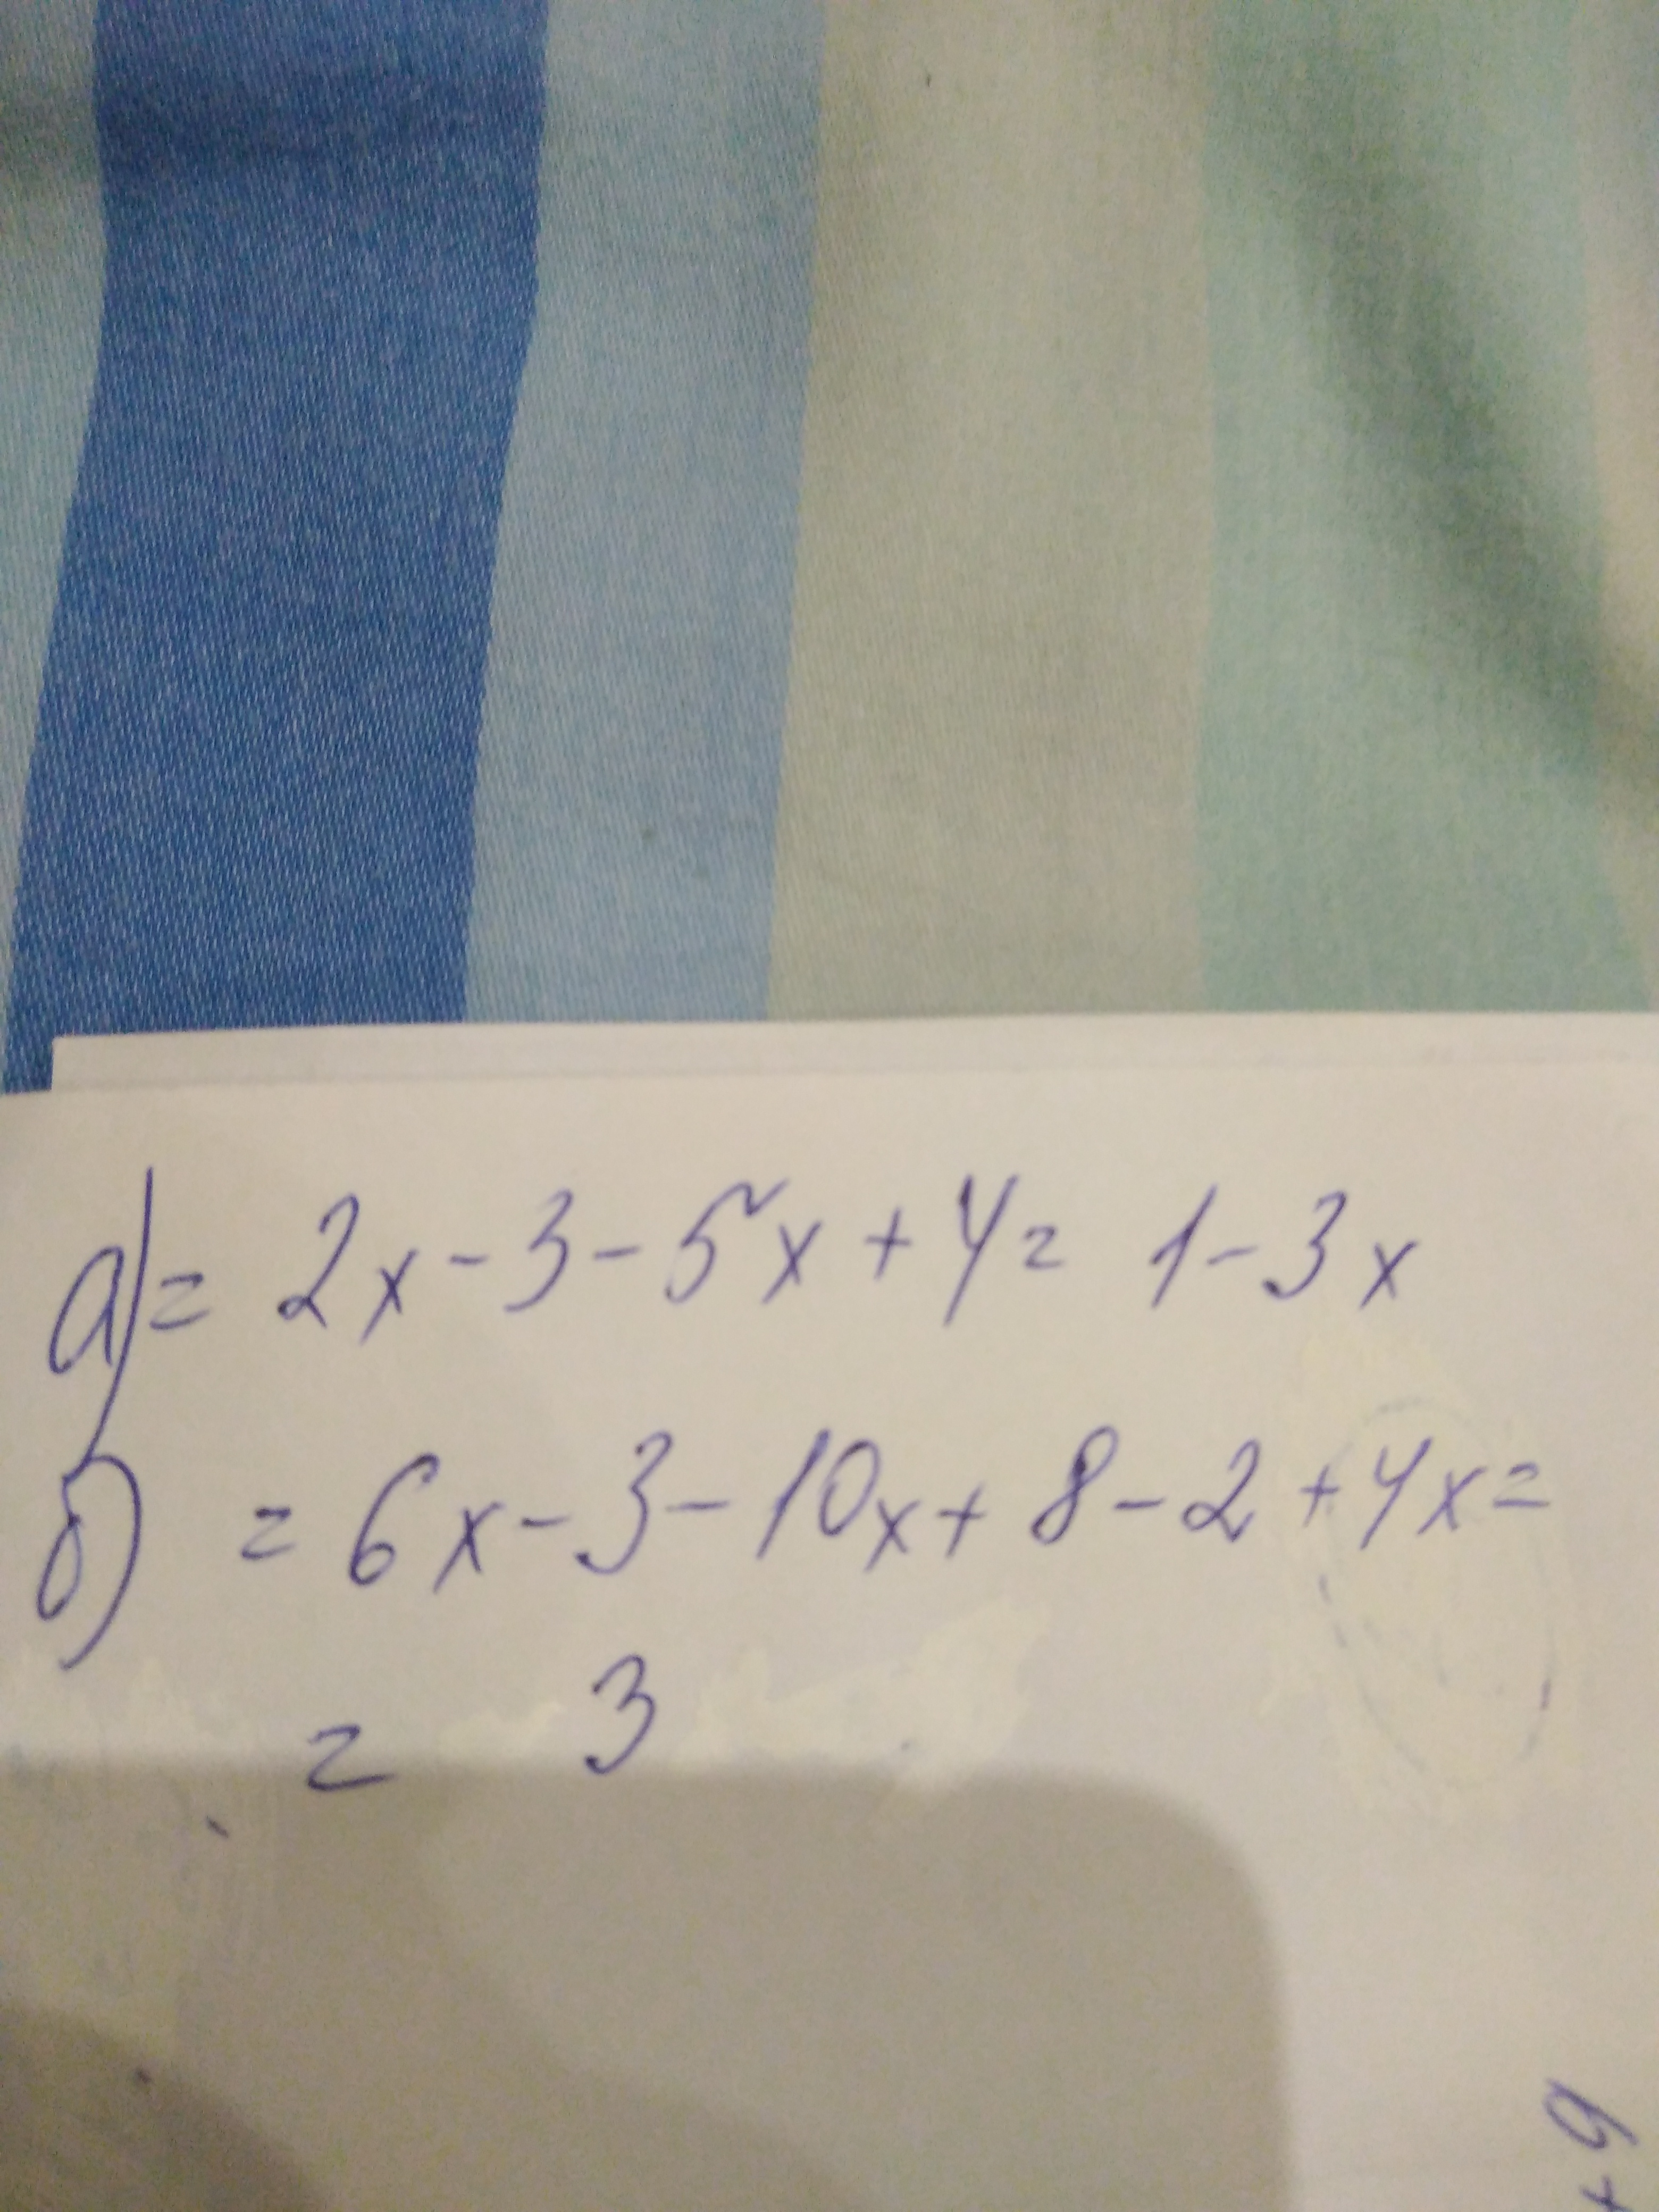 а) = 2x - 3 - 5x + 4 = 1 - 3x
б) = 6x - 3 - 10x + 8 - 2 + 4x =
= 3